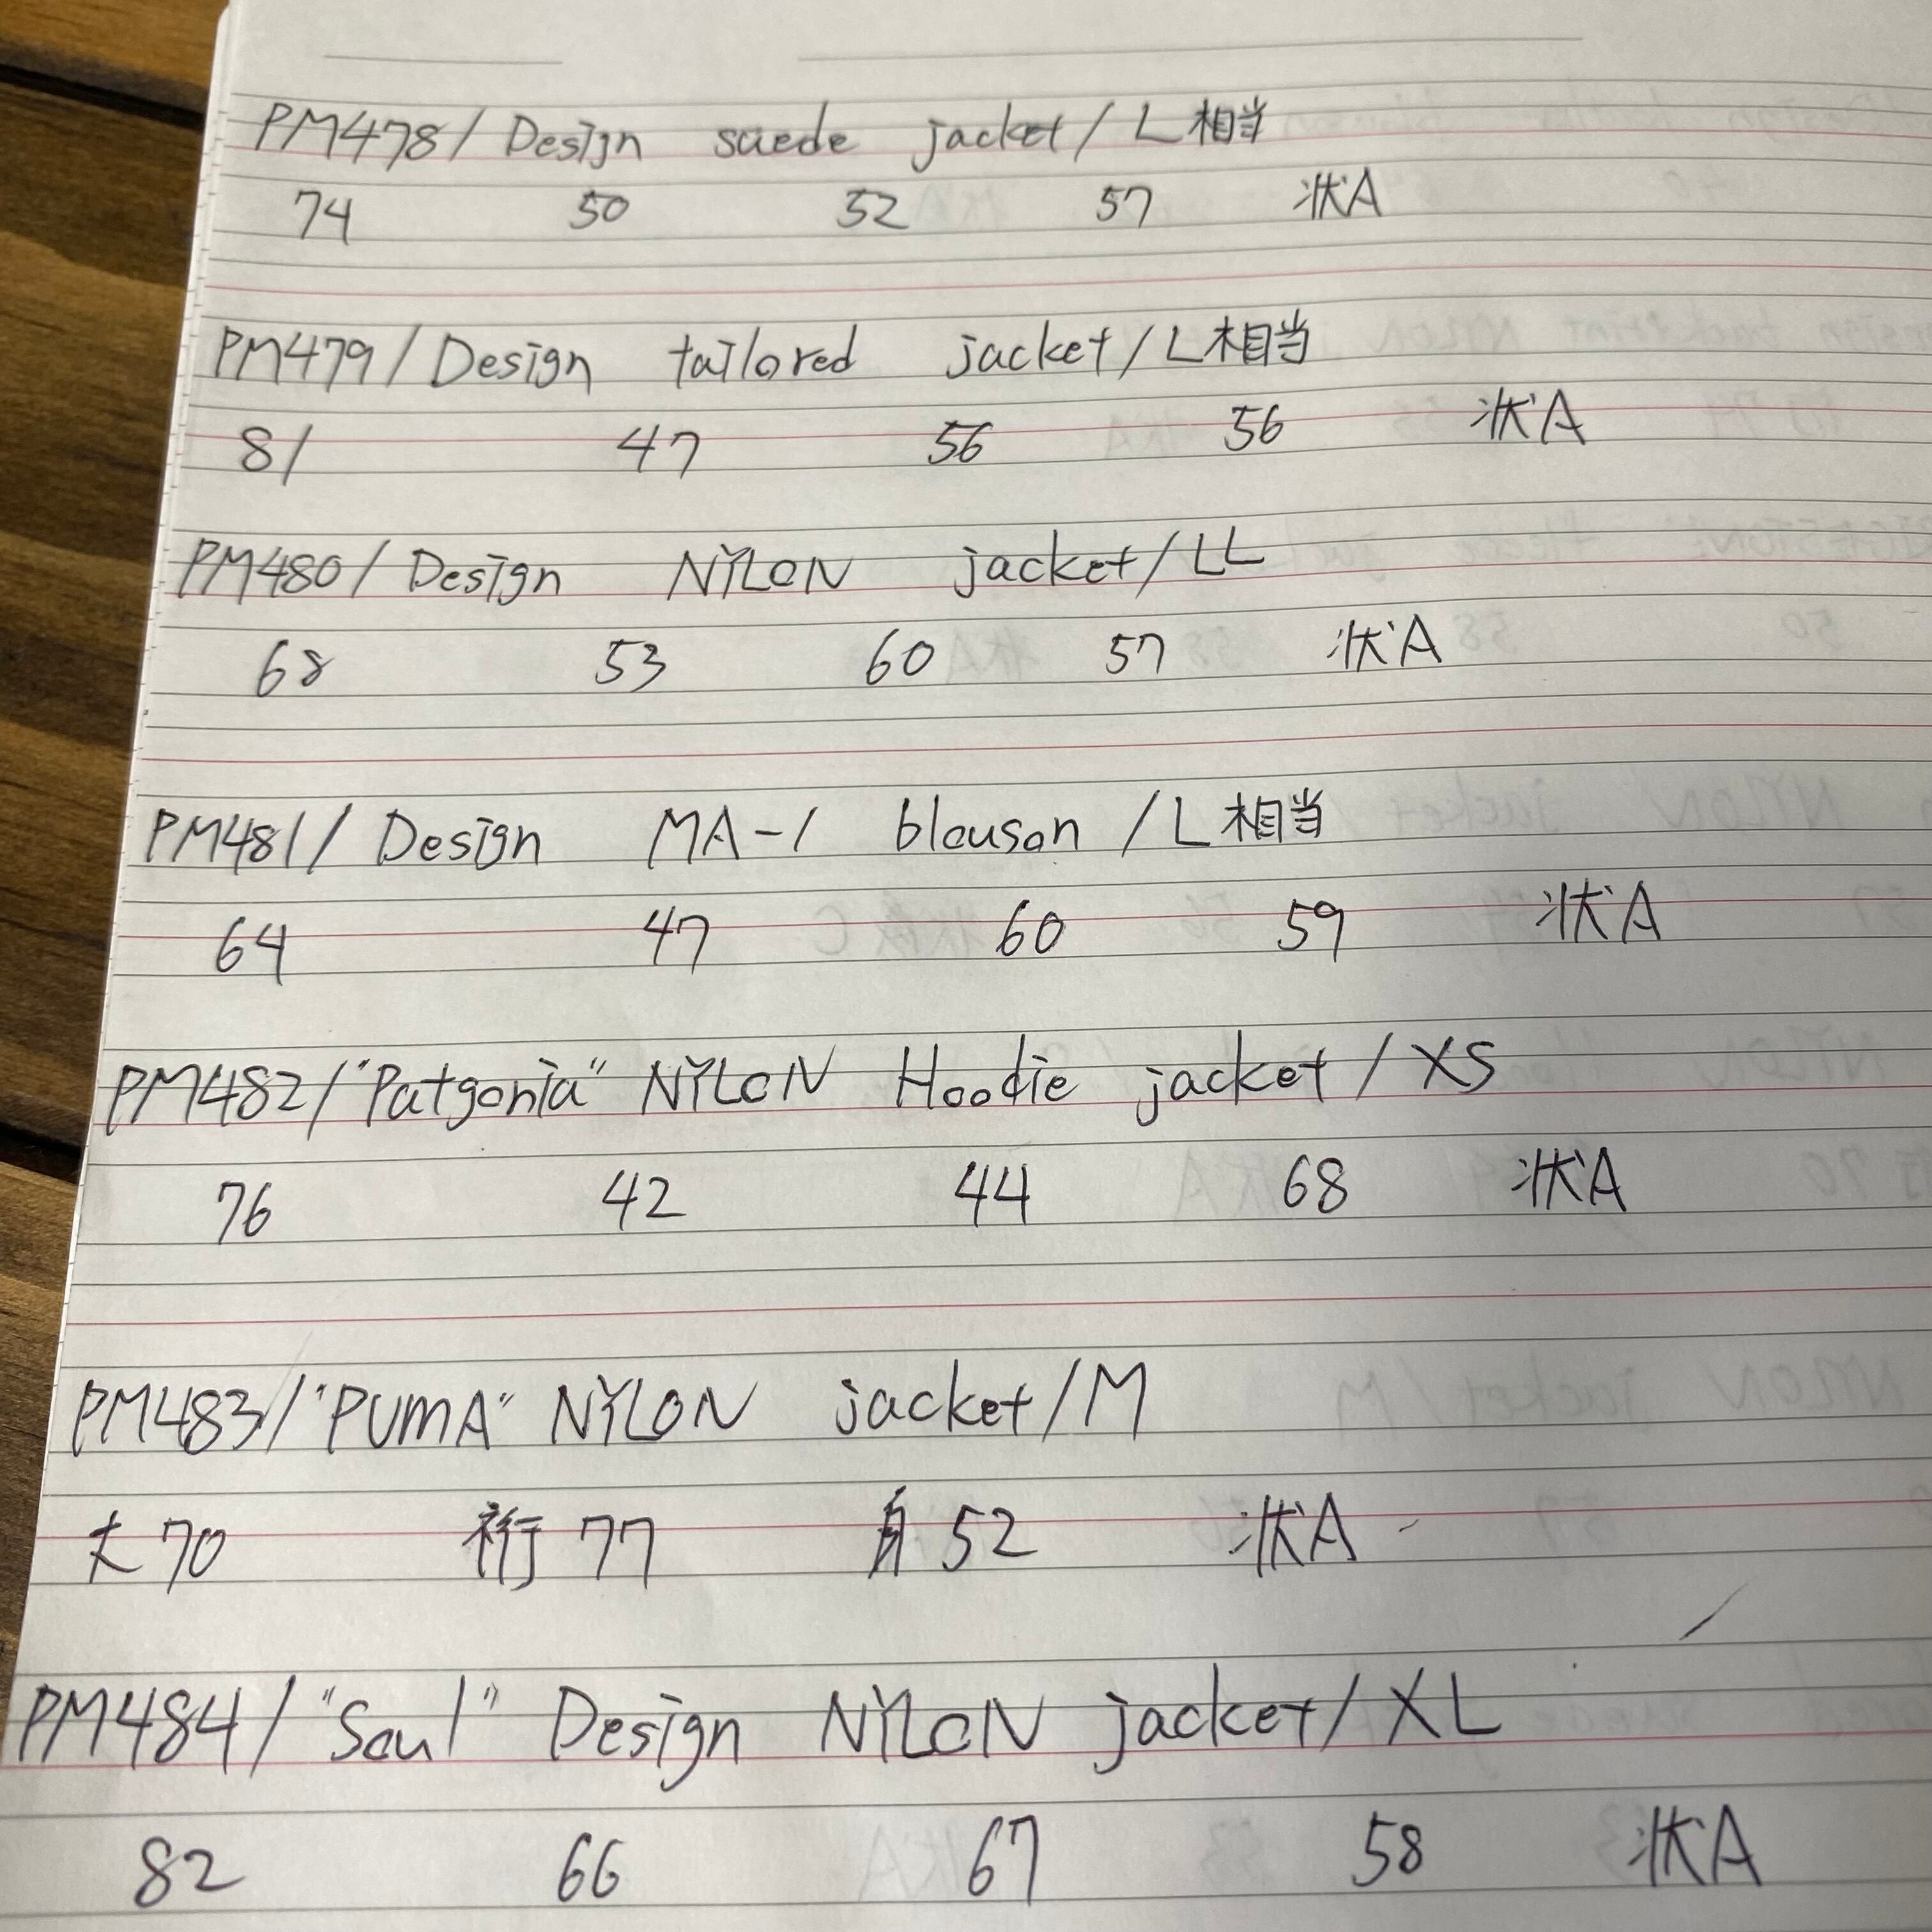 PM478/Design suede jacket/L相当
74 50 52 57 状A
PM479/Design tailored jacket/L相当
81 47 56 56 状A
PM480/Design NYLON jacket/LL
68 53 60 57 状A
PM481/Design MA-1 blouson/L相当
64 47 60 59 状A
PM482/"Patgonia" NYLON Hoodie jacket/XS
76 42 44 68 状A
PM483/"PUMA" NYLON jacket/M
丈70 裄77 身52 状A
PM484/"Soul" Design NYLON jacket/XL
82 66 67 58 状A